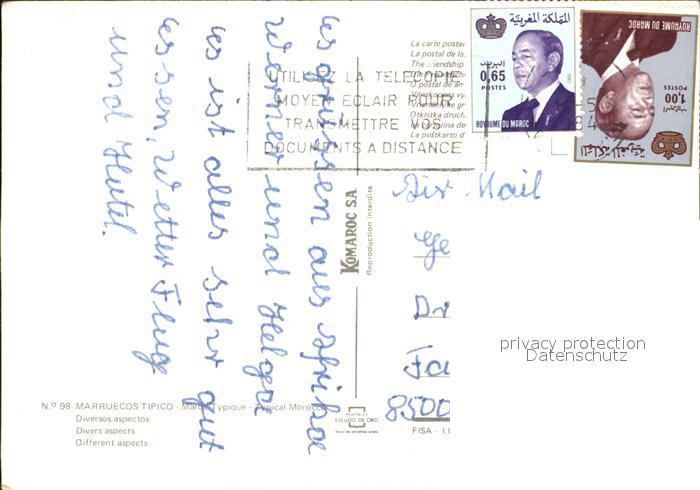 es grüssen aus Afrika
Werner und Helga
es ist alles sehr gut
essen, Wetter Fluge
und Hotel.
Air Mail
Ge
Dr
Fa
8500
UTILISEZ LA TELECOPIE
MOYEN ECLAIR POUR
TRANSMETTRE VOS
DOCUMENTS A DISTANCE
La carte postal
La postal de la
The friendship
O postal de am
Otkritka druzh
La postkarto d
المملكة المغربية
البريد
0,65
POSTES
ROYAUME DU MAROC
المملكة المغربية
البريد
1,00
POSTES
ROYAUME DU MAROC
KOMAROC SA
Reproduction interdite
N.º 98 MARRUECOS TIPICO - Maroc Typique - Typical Morocco
Diversos aspectos
Divers aspects
Different aspects
POSTALES
ESCUDO DE ORO
FISA - I.G
privacy protection
Datenschutz